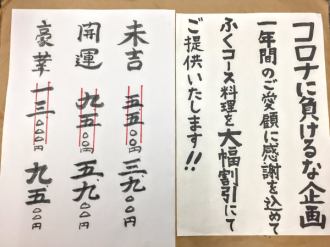 コロナに負けるな企画
一年間のご愛顧に感謝を込めて
ふくコース料理を大幅割引にて
ご提供いたします!!
末吉 五五〇〇円 三九〇〇円
開運 九五〇〇円 五九〇〇円
豪華 一三〇〇〇円 九五〇〇円